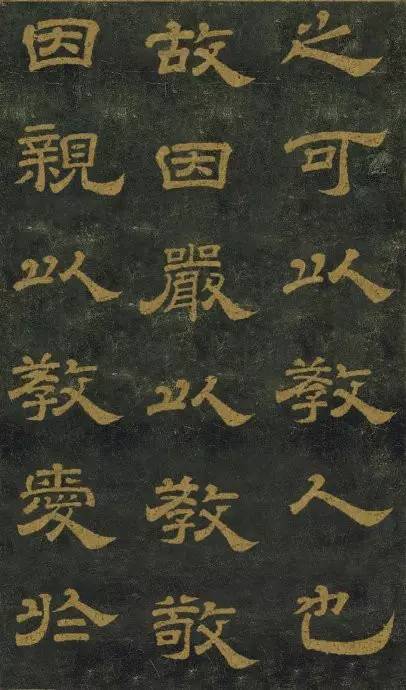 之可以教人也
故因嚴以教敬
因親以教愛於